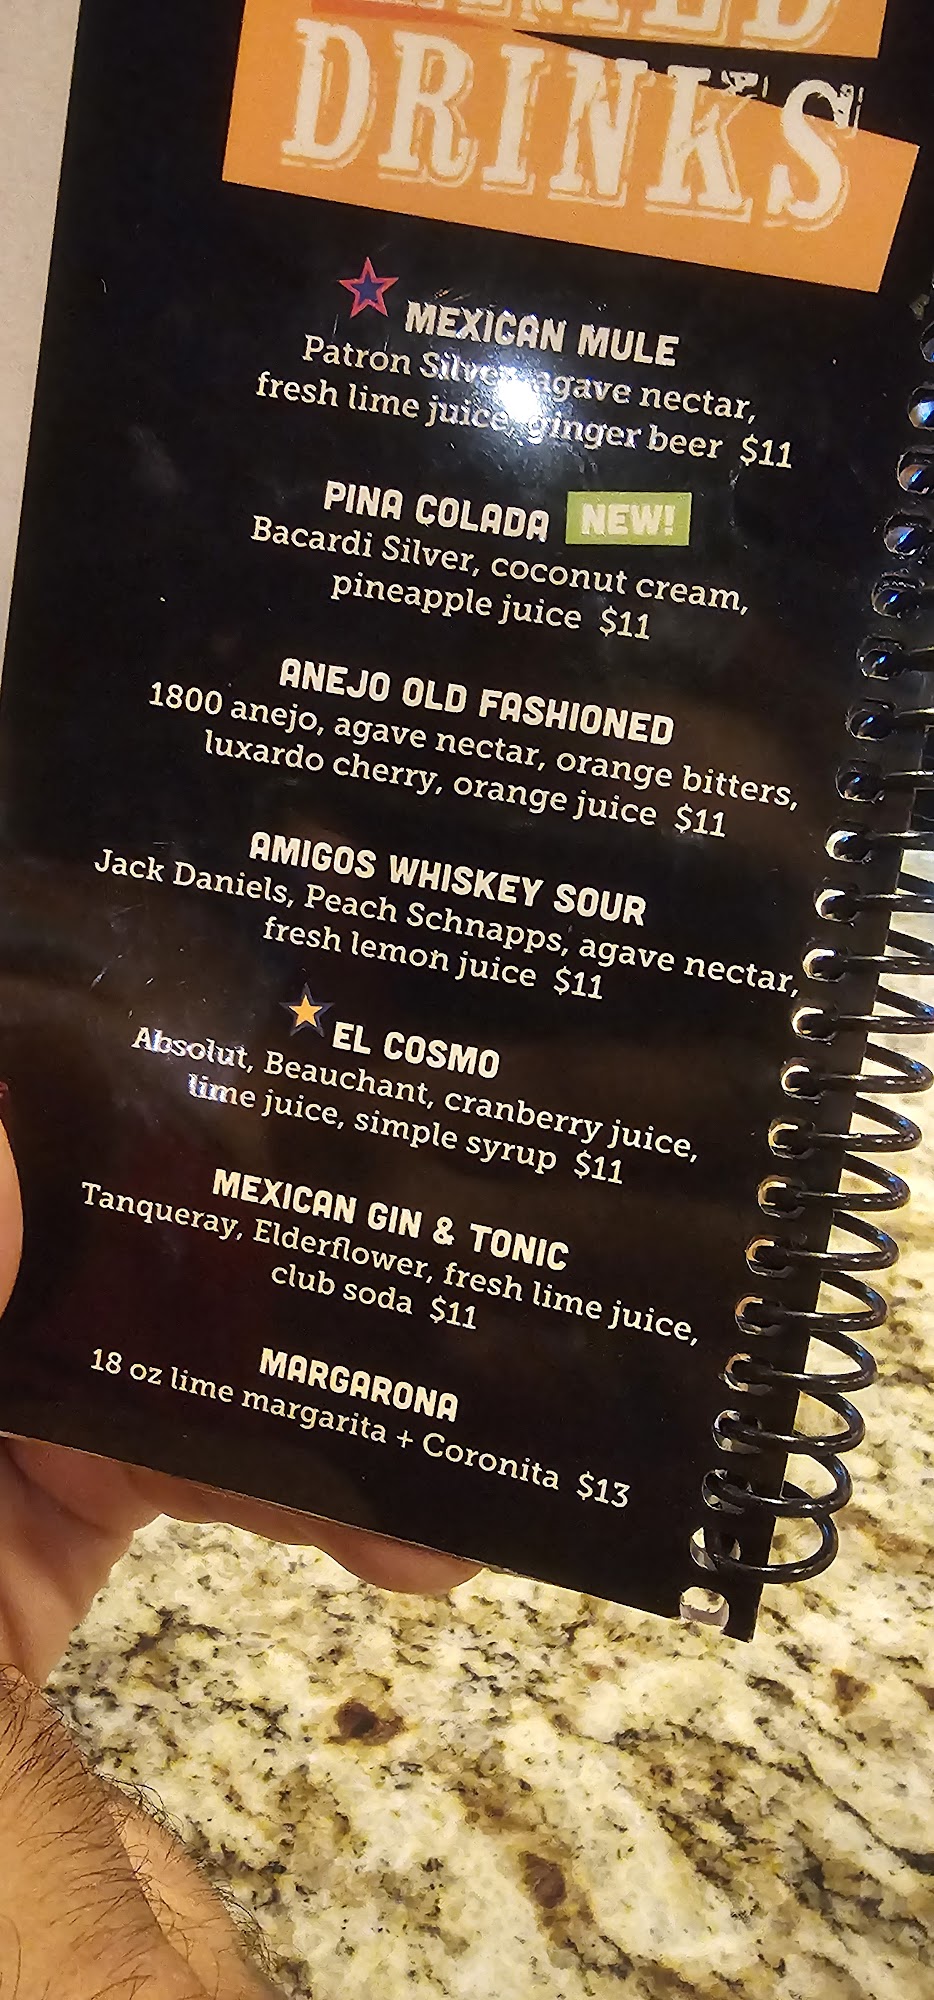 DRINKS
MEXICAN MULE
Patron Silver, agave nectar,
fresh lime juice, ginger beer $11
PINA COLADA NEW!
Bacardi Silver, coconut cream,
pineapple juice $11
ANEJO OLD FASHIONED
1800 anejo, agave nectar, orange bitters,
luxardo cherry, orange juice $11
AMIGOS WHISKEY SOUR
Jack Daniels, Peach Schnapps, agave nectar,
fresh lemon juice $11
EL COSMO
Absolut, Beauchant, cranberry juice,
lime juice, simple syrup $11
MEXICAN GIN & TONIC
Tanqueray, Elderflower, fresh lime juice,
club soda $11
MARGARONA
18 oz lime margarita + Coronita $13